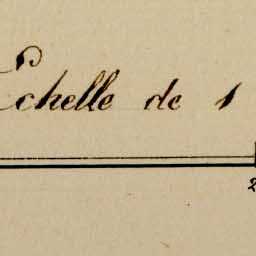 Echelle de 1
2